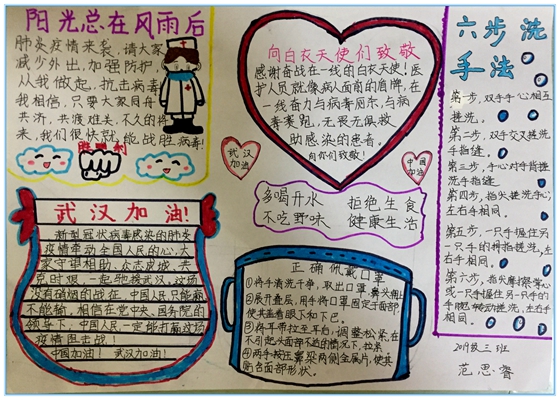 阳光总在风雨后
肺炎疫情来袭,请大家
减少外出,加强防护,
从我做起,抗击病毒!
我相信,只要大家同舟
共济,共渡难关,不久的将
来,我们很快就能战胜病毒!
向白衣天使们致敬
感谢奋战在一线的白衣天使!医
护人员就像病人面前的盾牌,在
一线奋力与病毒厮杀,与病
毒赛跑,无畏无惧救
助感染的患者。
向你们致敬!
武汉
加油
中国
加油
多喝开水 拒绝生食
不吃野味 健康生活
武汉加油!
新型冠状病毒感染的肺炎
疫情牵动全国人民的心,大
家守望相助、众志成城、共
克时艰,一起驰援武汉,这场
没有硝烟的战在,中国人民只能赢
不能输,相信在党中央、国务院的
领导下,中国人民一定能打赢这场
疫情阻击战!
中国加油! 武汉加油!
正确佩戴口罩
①将手清洗干净,取出口罩,鼻夹朝上
②展开叠层,用手将口罩固定于面部
使其盖着眼下和下巴。
③将耳带拉至耳台,调整松紧,在
不引起头部不适的情况下,拉紧
④两手按压鼻梁两侧金属片,使其
贴合面部形状。
六步洗
手法
第一步,双手手心相互
搓洗。
第二步,双手交叉搓洗
手指缝。
第三步,手心对手背搓
洗手指缝
第四步,指尖搓洗手心,
左右手相同。
第五步,一只手握住另
一只手的拇指搓洗,左
右手相同。
第六步,指尖摩擦掌心
或一只手握住另一只手的
手腕转动搓洗,左右手
相同。
2019级三班
范思睿